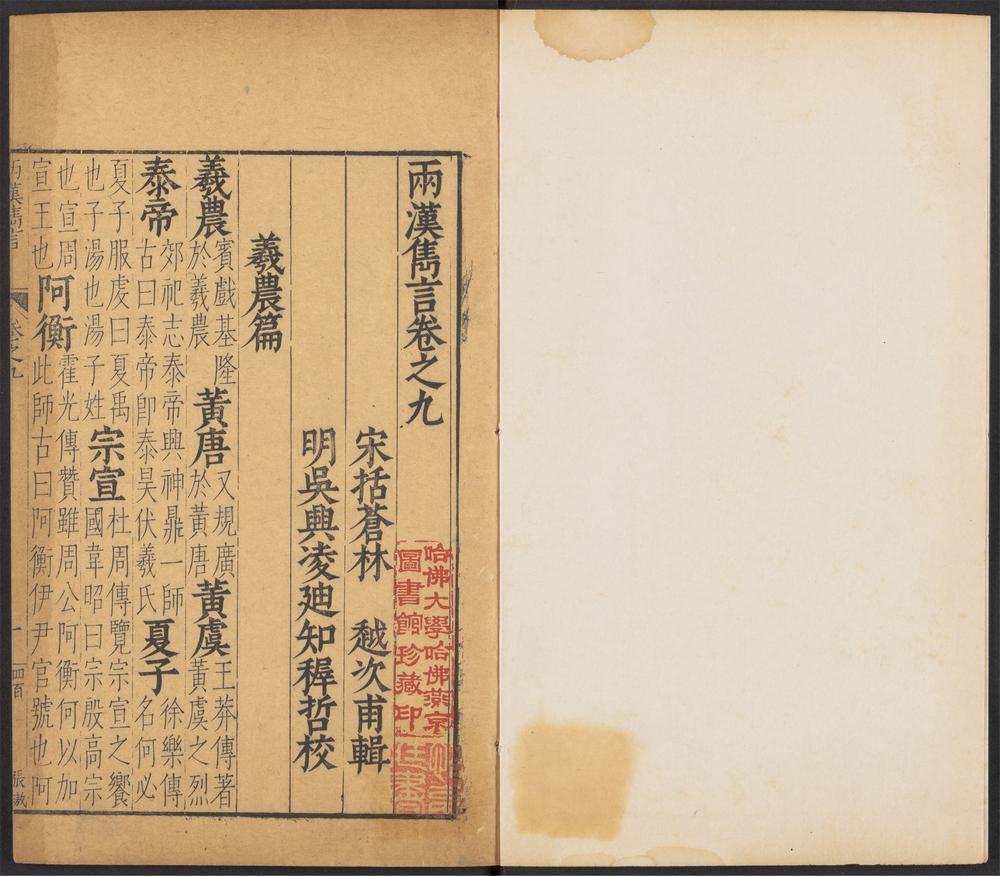 兩漢雋言卷之九
宋括蒼林 越次甫輯
明吳興凌迪知稺哲校
羲農篇
羲農賓戲基隆於羲農黃唐又規廣於黃唐黃虞王莽傳著黃虞之烈
泰帝郊祀志泰帝興神鼎一師古曰泰帝卽泰昊伏羲氏夏子徐樂傳名何必
夏子服虔曰夏禹也子湯也湯子姓宗宣杜周傳覽宗宣之饗國韋昭曰宗殷高宗
也宣周宣王也阿衡霍光傳贊雖周公阿衡何以加此師古曰阿衡伊尹官號也阿
兩漢雋言
卷之九
一
四百
哈佛大學哈佛燕京
圖書館珍藏印